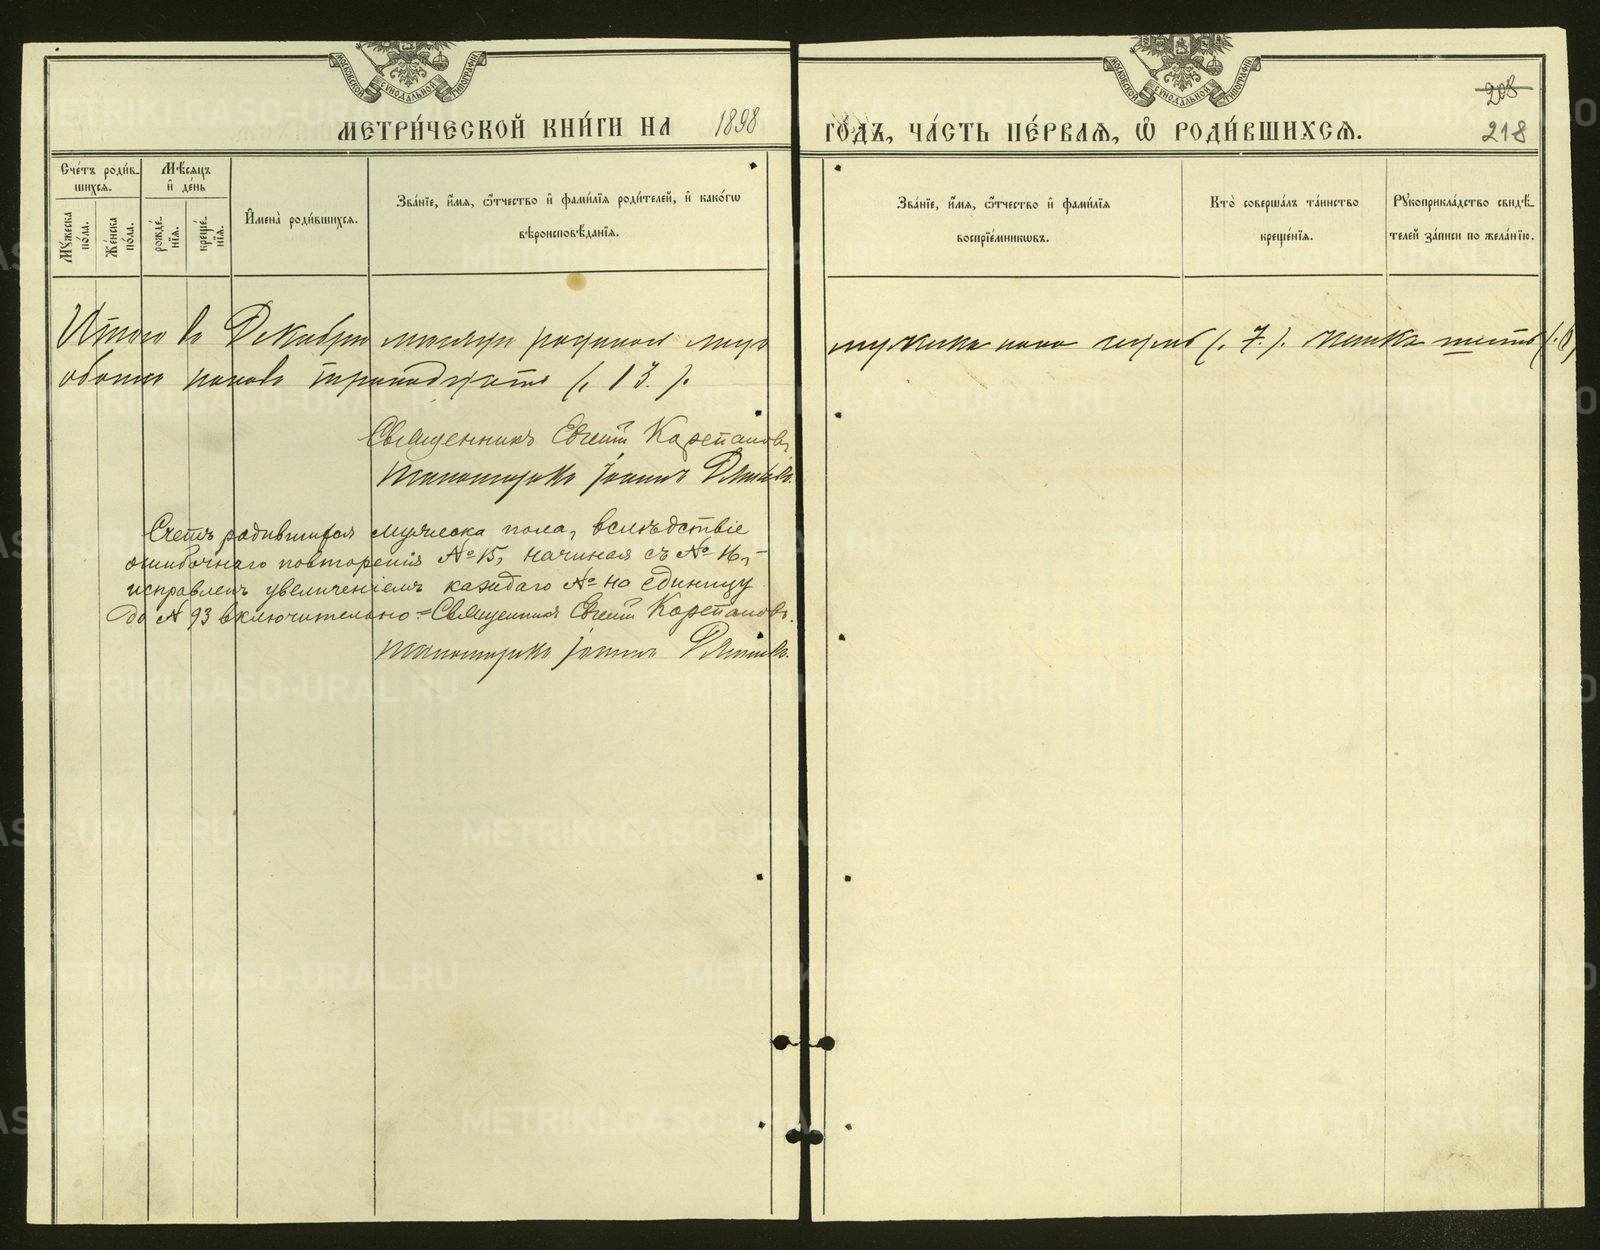 МОСКОВСКОЙ СѴНОДАЛЬНОЙ ТИПОГРАФІИ
МОСКОВСКОЙ СѴНОДАЛЬНОЙ ТИПОГРАФІИ
208
МЕТРИ́ЧЕСКОЙ КНИ́ГИ НА 1898 ГО́ДЪ, ЧА́СТЬ ПЕ́РВАЯ, Ѡ҆ РОДИ́ВШИХСЯ.
218
Сче́тъ роди́в-
шихся.
Мѣ́сяцъ
и҆ де́нь
Му́жеска
по́ла.
Же́нска
по́ла.
рожде́-
нїя.
креще́-
нїя.
И҆мена̀ роди́вшихся.
Зва́нїе, и҆́мя, ѻ҆́тчество и҆ фами́лїя роди́телей, и҆ како́гѡ
вѣроисповѣ́данїя.
Зва́нїе, и҆́мя, ѻ҆́тчество и҆ фами́лїя
воспрїе́мниковъ.
Кто̀ соверша́лъ та́инство
креще́нїя.
Рукоприкла́дство свидѣ́-
телей за́писи по жела́нїю.
Итого въ Декабрѣ мѣсяцѣ родилось
мужеска пола семь (. 7.). женска шесть (.6)
обоего пола тринадцать (. 13.).
Священникъ Евгеній Карепановъ
Іоаннъ
Счетъ родившихся мужеска пола, вслѣдствіе
ошибочнаго повторенія № 15, начиная съ № 16, -
исправленъ увеличеніемъ каждаго № на единицу
до № 93 включительно = Священникъ Евгеній Карепановъ.
Іоаннъ
METRIKI.GASO-URAL.RU